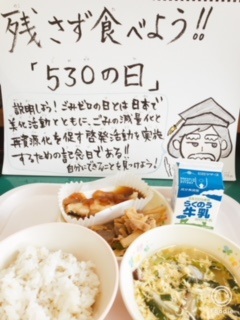 残さず食べよう!!
「530の日」
説明しよう!ごみゼロの日とは日本で
美化活動とともに、ごみの減量化と
再資源化を促す啓発活動を実施
するための記念日である!!
自分にできることを見つけよう!
らくのう
牛乳